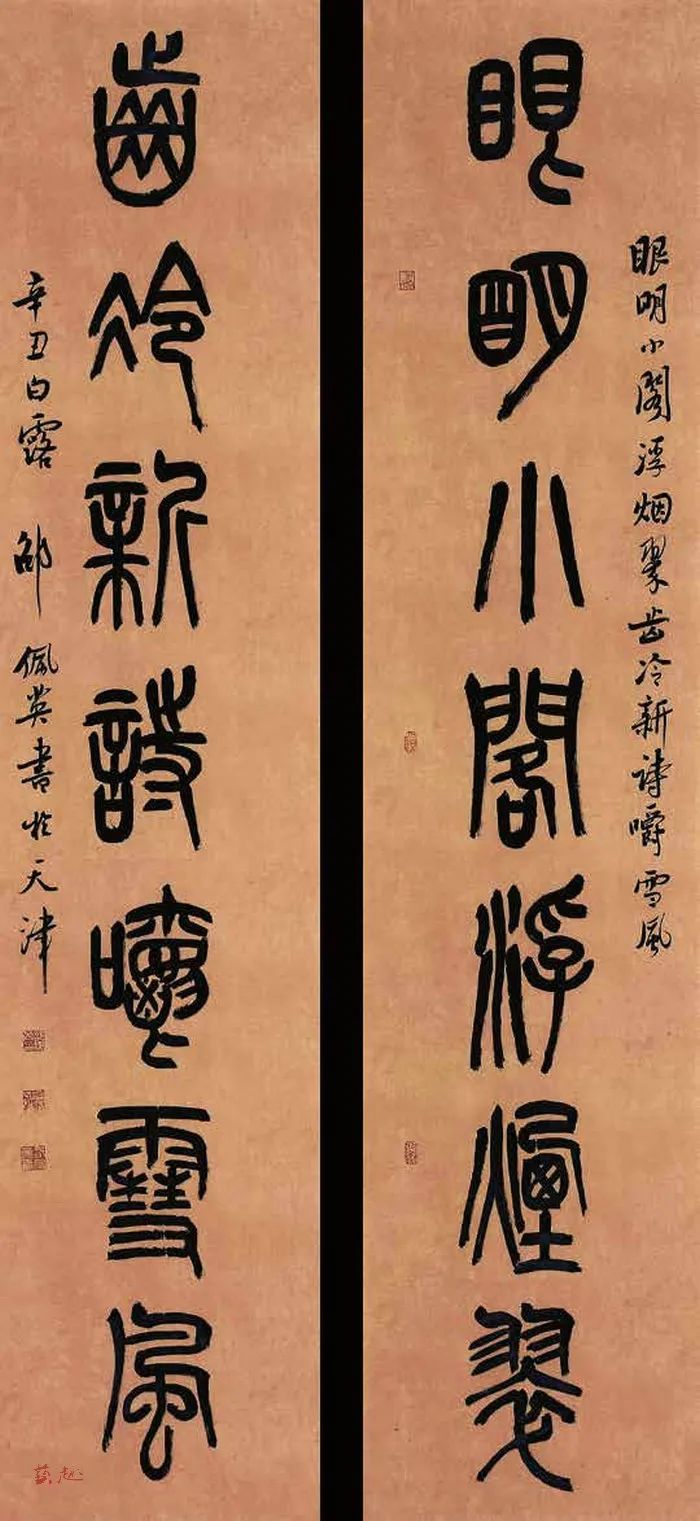 眼明小阁浮烟翠齿冷新诗嚼雪风
眼明小閣浮煙翠
齒冷新詩嚼雪風
辛丑白露 邵佩英書於天津